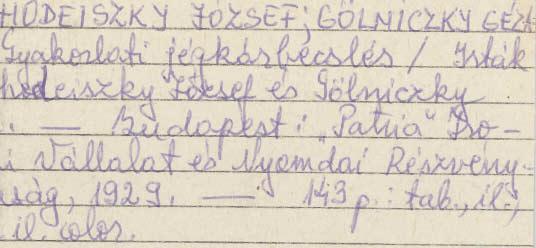 HODEISZKY JÓZSEF; GÖLNICZKY GÉZA
Gyakorlati jégkárbecslés / Irták
hodeiszky József és Gölniczky
. — Budapest : „Patria" Iro-
i Vállalat és Nyomdai Részvény-
ság, 1929. — 143 p. : tab., il.,
il. color.